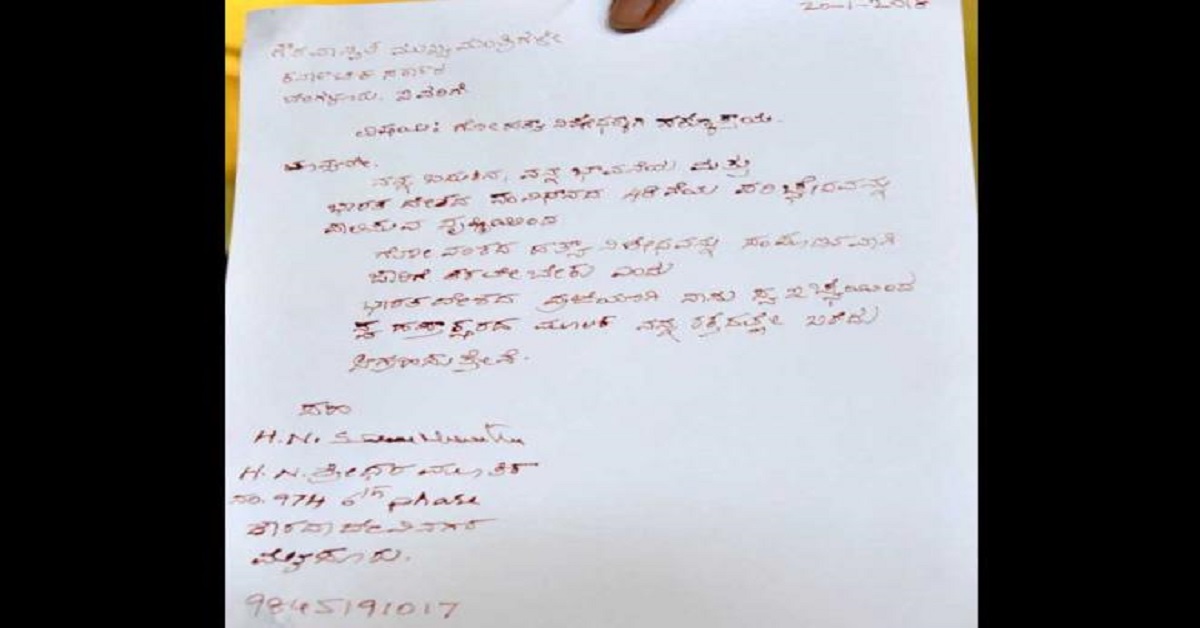 20-1-2018
ಗೌರವಾನ್ವಿತ ಮುಖ್ಯಮಂತ್ರಿಗಳೇ
ಕರ್ನಾಟಕ ಸರ್ಕಾರ
ಬೆಂಗಳೂರು. ಇವರಿಗೆ
ವಿಷಯ: ಗೋಹತ್ಯಾ ನಿಷೇಧಕ್ಕಾಗಿ ಹಕ್ಕೊತ್ತಾಯ.
ಮಾನ್ಯರೇ.
ನನ್ನ ಬದುಕಿನ, ನನ್ನ ಭಾವನೆಯ ಮತ್ತು
ಭಾರತ ದೇಶದ ಸಂವಿಧಾನದ 48ನೆಯ ಪರಿಚ್ಛೇದವನ್ನು
ಪಾಲಿಸುವ ದೃಷ್ಟಿಯಿಂದ
ಗೋವಂಶದ ಹತ್ಯಾ ನಿಷೇಧವನ್ನು ಸಂಪೂರ್ಣವಾಗಿ
ಜಾರಿಗೆ ತರಲೇ ಬೇಕು ಎಂದು
ಭಾರತದೇಶದ ಪ್ರಜೆಯಾಗಿ ನಾನು ಸ್ವ ಇಚ್ಛೆಯಿಂದ
ಸ್ವ ಹಸ್ತಾಕ್ಷರದ ಮೂಲಕ ನನ್ನ ರಕ್ತದಲ್ಲೇ ಬರೆದು
ಆಗ್ರಹಿಸುತ್ತೇನೆ.
ಸಹಿ
H.N.
H.N. ಶ್ರೀಧರ ಮೂರ್ತಿ
ನಂ. 974 6th phase
ಶಾರದಾದೇವಿನಗರ
ಮೈಸೂರು.
9845191017